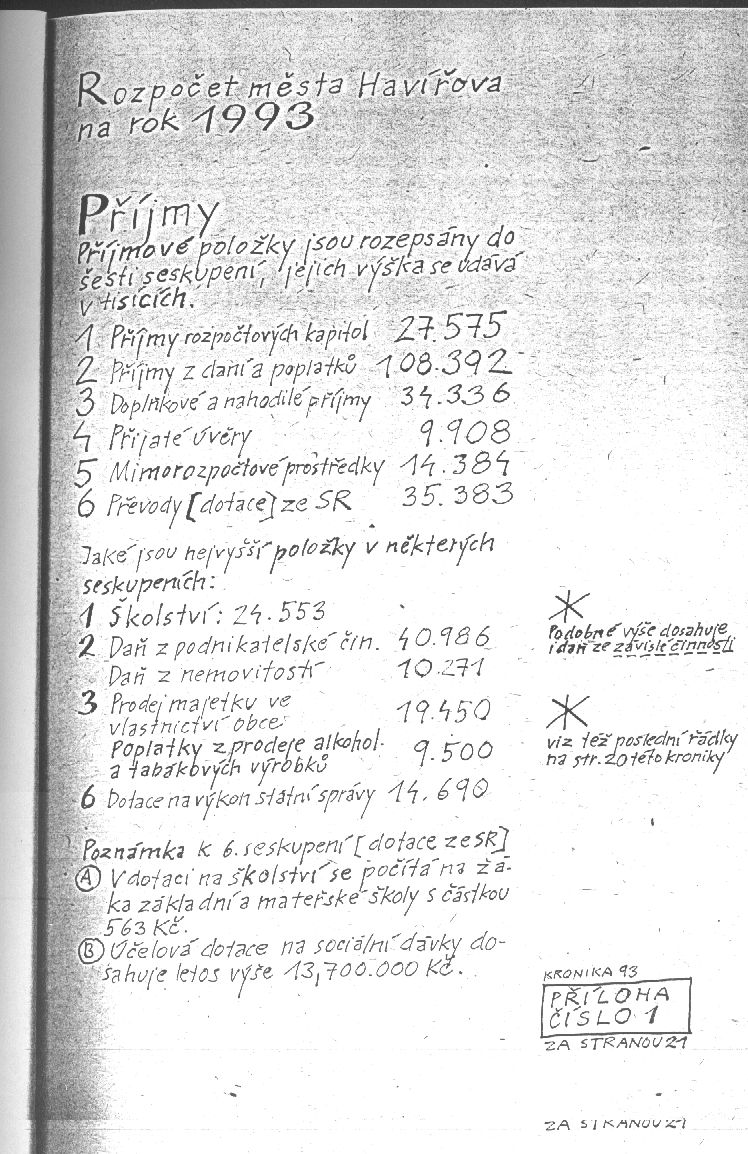 Rozpočet města Havířova
na rok 1993
Příjmy
Příjmové položky jsou rozepsány do
šesti seskupení, jejich výška se udává
v tisících.
1 Příjmy rozpočtových kapitol 27.575
2 Příjmy z daní a poplatků 108.392
3 Doplňkové a nahodilé příjmy 34.336
4 Přijaté úvěry 9.908
5 Mimorozpočtové prostředky 14.384
6 Převody [dotace] ze SR 35.383
Jaké jsou nejvyšší položky v některých
seskupeních:
1 Školství: 24.553
2 Daň z podnikatelské čin. 40.986
Daň z nemovitostí 10.271
3 Prodej majetku ve
vlastnictví obce 19.450
Poplatky z prodeje alkohol.
a tabákových výrobků 9.500
6 Dotace na výkon státní správy 14.690
Poznámka k 6. seskupení [dotace ze SR]
A V dotaci na školství se počítá na žá-
ka základní a mateřské školy s částkou
563 Kč.
B Účelová dotace na sociální dávky do-
sahuje letos výše 13,700.000 Kč.
Podobné výše dosahuje
i daň ze závislé činnosti
viz též poslední řádky
na str. 20 této kroniky
KRONIKA 93
PŘÍLOHA
ČÍSLO 1
ZA STRANOU 21
ZA STRANOU 21